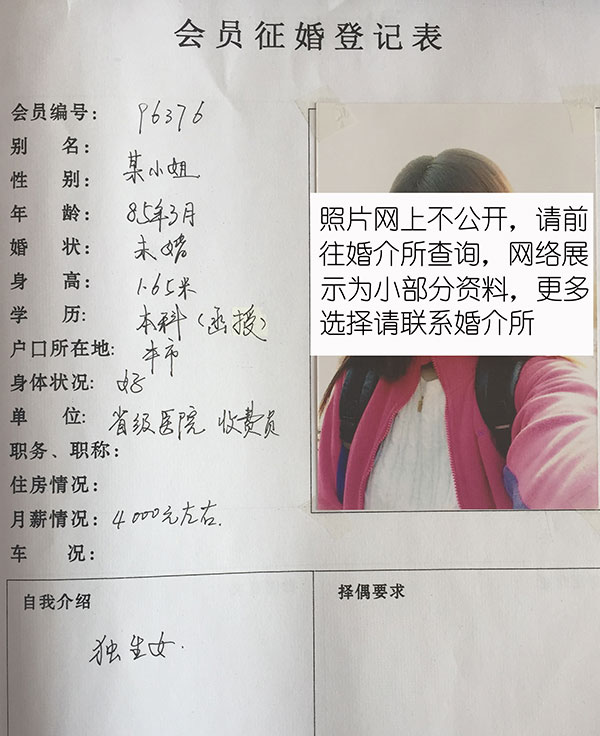 会员征婚登记表
会员编号： 96376
别 名：
性 别： 某小姐
年 龄： 85年3月
婚 状： 未婚
身 高： 1.65米
学 历： 本科（函授）
户口所在地： 本市
身体状况： 好
单 位： 省级医院 收费员
职务、职称：
住房情况：
月薪情况： 4000元左右.
车 况：
照片网上不公开，请前
往婚介所查询，网络展
示为小部分资料，更多
选择请联系婚介所
自我介绍
独生女.
择偶要求